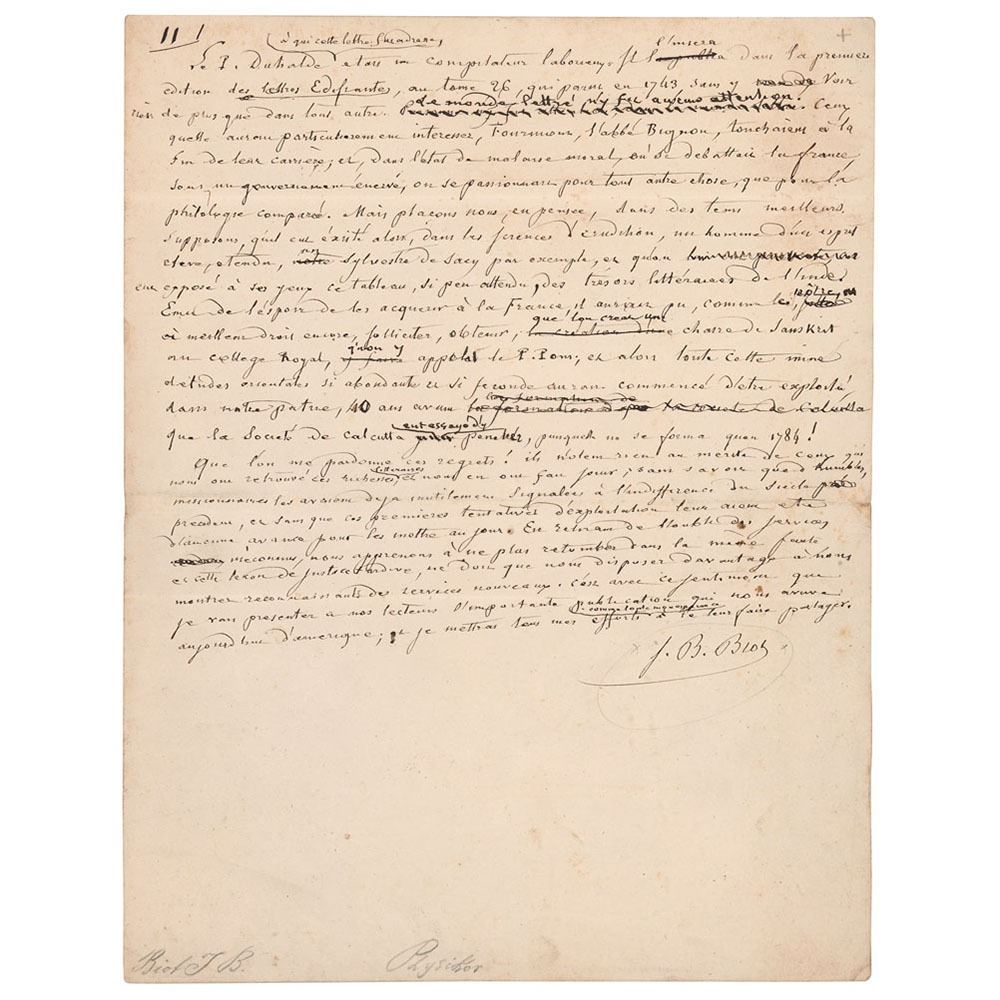 11 /
à qui cette lettre s'adresse,
Le P. Duhalde etait un compilateur laborieux. Il l'insera dans la premiere
edition des lettres Edifiantes, au tome 26, qui parut en 1743, sans y voir
rien de plus que dans tout autre. le monde lettré n'y fit aucune attention. Ceux
quelle auroit particulierement interesser, Fourmont, l'abbé Bignon, touchaient à la
fin de leur carrière; et, dans l'état de malaise moral, où se debattait la france,
sous un gouvernement énervé, on se passionnait pour tout autre chose, que pour la
philologie comparée. Mais plaçons nous, en pensée, dans des tems meilleurs.
Supposons, qu'il eut éxisté alors, dans les sciences d'érudition, un homme d'un esprit
elevé, etendu, un Sylvestre de Sacy par exemple, et qu'on
eut exposé à ses yeux ce tableau, si peu attendu, des trésors littéraires de l'Inde.
Emu de l'espoir de les acquerir à la France, il auroit pu, comme le nôtre,
et à meilleur droit encore, solliciter, obtenir, que l'on creat une chaire de Sanskrit
au college Royal, qu'on y appelat le P. Pons; et alors toute cette mine
d'etudes orientales si abondante et si feconde auroit commencé d'etre exploitée
dans notre patrie, 40 ans avant
que la Societé de Calcutta eut essayé d'y penetrer, puisqu'elle ne se forma qu'en 1784!
Que l'on me pardonne ces regrets! ils n'otent rien au merite de ceux qui
nous ont retrouvé ces richesses littéraires, et nous en ont fait jour, sans savoir que d'humbles
missionnaires les avaient deja inutilement signalées à l'indifference du siecle
precedent, et sans que ces premieres tentatives d'exploitation leur aient eté
d'aucune avance pour les mettre au jour. En retirant de l'oubli des services
méconnus, nous apprenons à ne plus retomber dans la même faute
et cette leçon de justice tardive, ne doit que nous disposer d'avantage à nous
montrer reconnaissants des services nouveaux. C'est avec ce sentiment que
je vais presenter à nos lecteurs l'importante publication qui nous arrive
aujourd'hui d'amerique; et je mettrai tous mes efforts à le leur faire partager.
J. B. Biot
Biot J. B.
Physiker